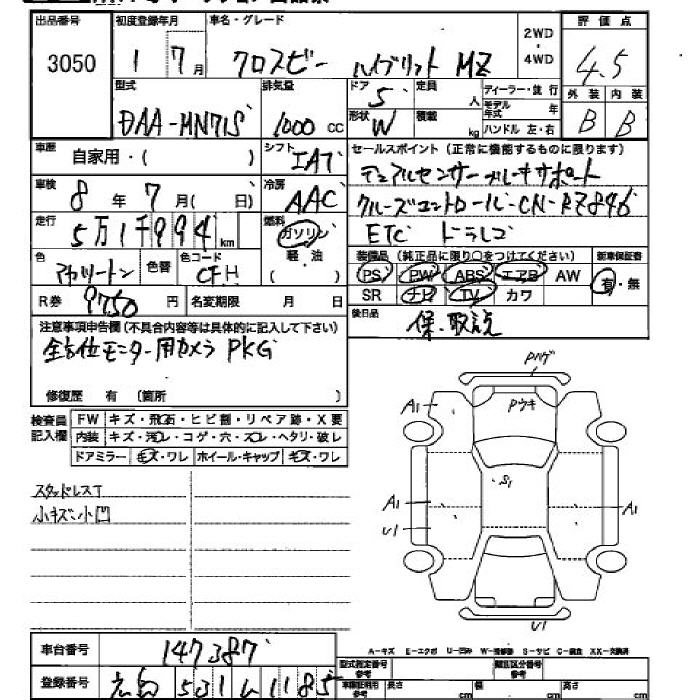 出品番号 初度登録年月 車名・グレード 2WD・4WD 評価点
3050 1 7月 クロスビー ハイブリット MZ 4.5
型式 排気量 ドア 5 定員 人 ディーラー・並行 外装 内装
DAA-MN71S 1000cc 形状 W 積載 kg モデル年式 年 ハンドル 左・右 B B
車歴 自家用・( ) シフト IAT セールスポイント(正常に機能するものに限ります)
デュアルセンサーブレーキサポート
車検 8年 7月( 日) 冷房 AAC クルーズコントロール・CN-RZ846
走行 5万1千994km 燃料 ガソリン ETC ドラレコ
色 色替 色コード CFH 軽・油 装備品(純正品に限り○をつけてください) 新車保証書
PS PW ABS エアB AW 有・無
R券 9750円 名変期限 月 日 SR ナビ TV カワ
注意事項申告欄(不具合内容等は具体的に記入して下さい) 後日品 保・取説
全方位モニター用カメラPKG
修復歴 有(箇所 )
検査員記入欄 FW キズ・飛石・ヒビ割・リペア跡・X要
内装 キズ・汚レ・コゲ・穴・スレ・ヘタリ・破レ
ドアミラー キズ・ワレ ホイール・キャップ キズ・ワレ
スタッドレスT
小キズ小凹
Pハゲ
A1 Pウキ
S1
A1 A1
U1
U1
A-キズ E-エクボ U-凹み W-補修跡 S-サビ C-腐食 XX-交換済
車台番号 147387 型式指定番号 参考 類別区分番号 参考
登録番号 531 1185 車庫証明用 参考 長さ cm 幅 cm 高さ cm